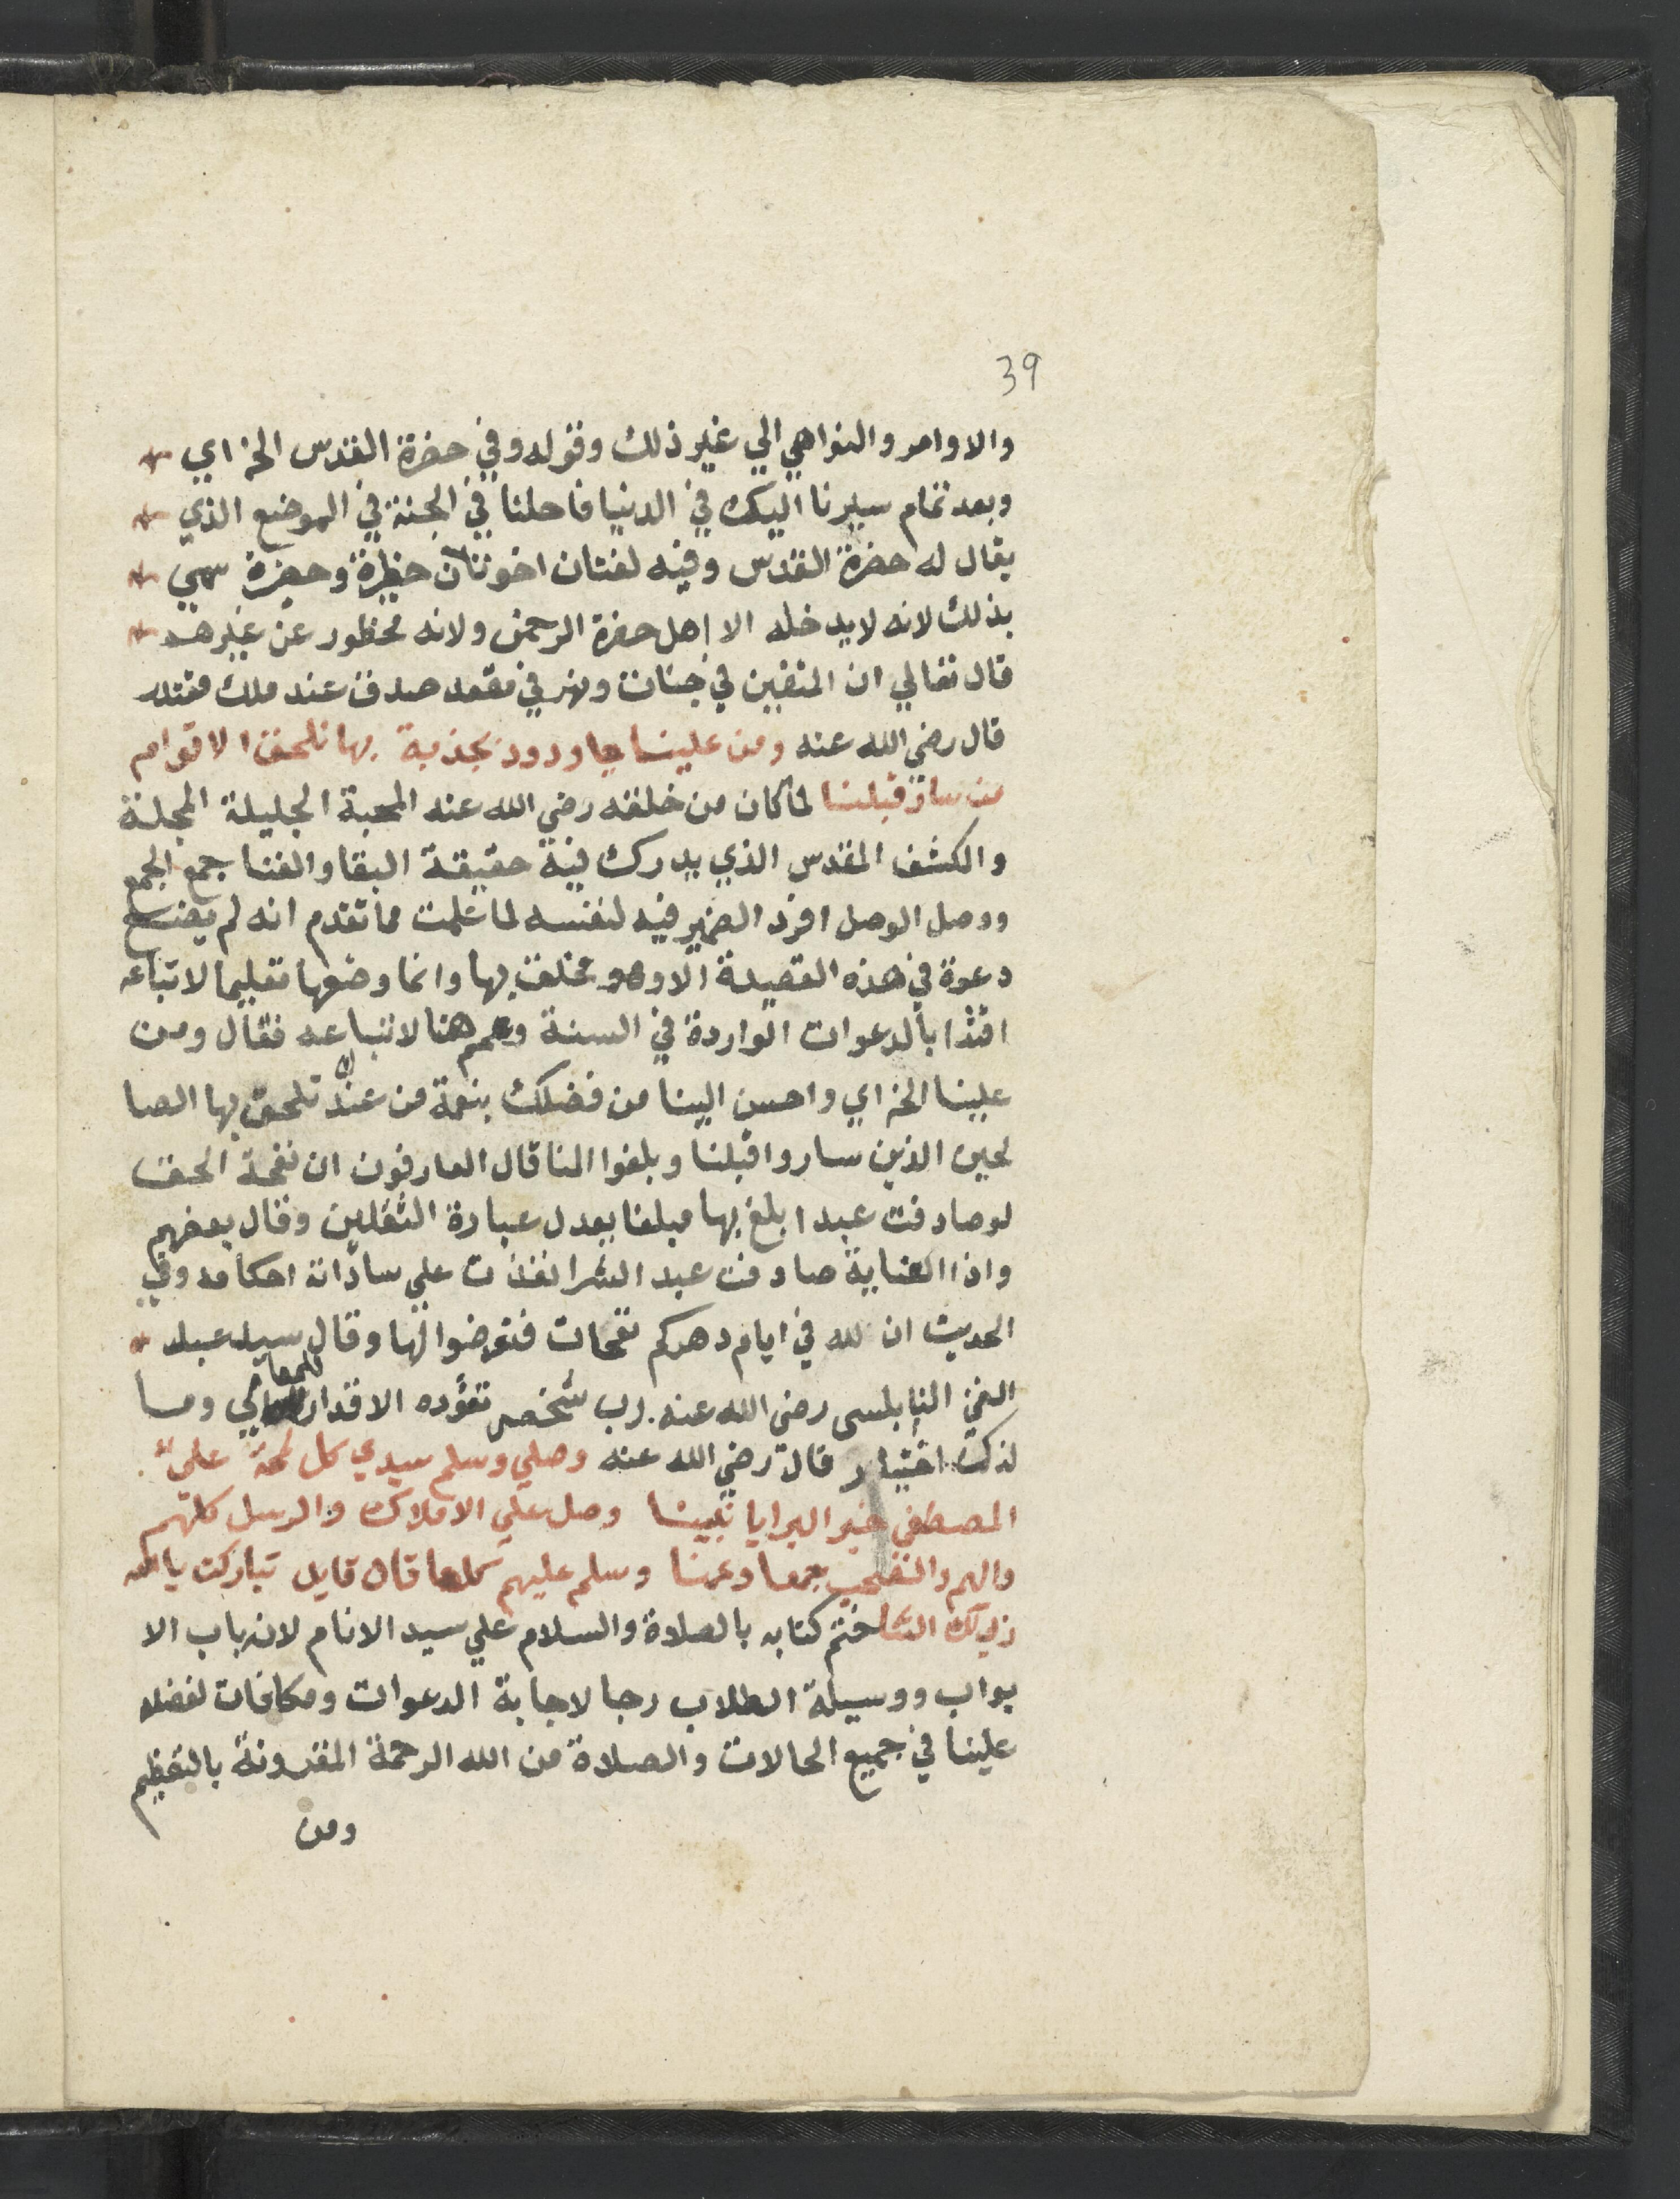 39
والاوامر والنواهي الي غير ذلك وقوله وفي حضرة القدس الخ اي
وبعد تمام سيرنا اليك في الدنيا فاحلنا في الجنة في الموضع الذي
يقال له حضرة القدس وفيه لغتان اخوتان حظرة وحضرة سمي
بذلك لانه لا يدخله الا اهل حضرة الرحمن ولانه محظور عن غيرهم
قال تعالي ان المتقين في جنات ونهر في مقعد صدق عند مليك مقتدر
قال رضي الله عنه ومن علينا يا ودود بجذبة بها نلحق الاقوام
من سار قبلنا لما كان من خلقه رضي الله عنه المحبة الجليلة المجلة
والكشف المقدس الذي يدرك فيه حقيقة البقا والفنا جمع الجمع
ووصل الوصل افرد الضمير فيه لنفسه لما علمت مما تقدم انه لم يضع
دعوة في هذه القصيدة الا وهو متخلق بها وانما وضعها تعليما لاتباعه
اقتدا بالدعوات الواردة في السنة وعمم هنا لاتباعه فقال ومن
علينا الخ اي واحسن الينا من فضلك بنعمة من عندك نلحق بها الصا
لحين الذين ساروا قبلنا وبلغوا المنا قال العارفون ان نفحة الحق
لو صادفت عبدا بلغ بها مبلغا يعدل عبادة الثقلين وقال بعضهم
واذا العناية صادفت عبد الشرا نفذت علي ساداته احكامه وفي
الحديث ان لله في ايام دهركم نفحات فتعرضوا لها وقال سيد عبد
الغني النابلسي رضي الله عنه. رب شخص تقؤده الاقدار للمعالي وما
لذك اختيار قال رضي الله عنه وصلي وسلم سيدي كل لمحة علي
المصطفي خير البرايا نبينا وصل علي الاملاك والرسل كلهم
والهم والصحب جمعا وعمنا وسلم عليهم كلما قال قايل تباركت يا الله
ربي لك الثنا ختم كتابه بالصلاة والسلام علي سيد الانام لانه باب الا
بواب ووسيلة الطلاب رجا لاجابة الدعوات ومكافات لفضله
علينا في جميع الحالات والصلاة من الله الرحمة المقرونة بالتعظيم
ومن